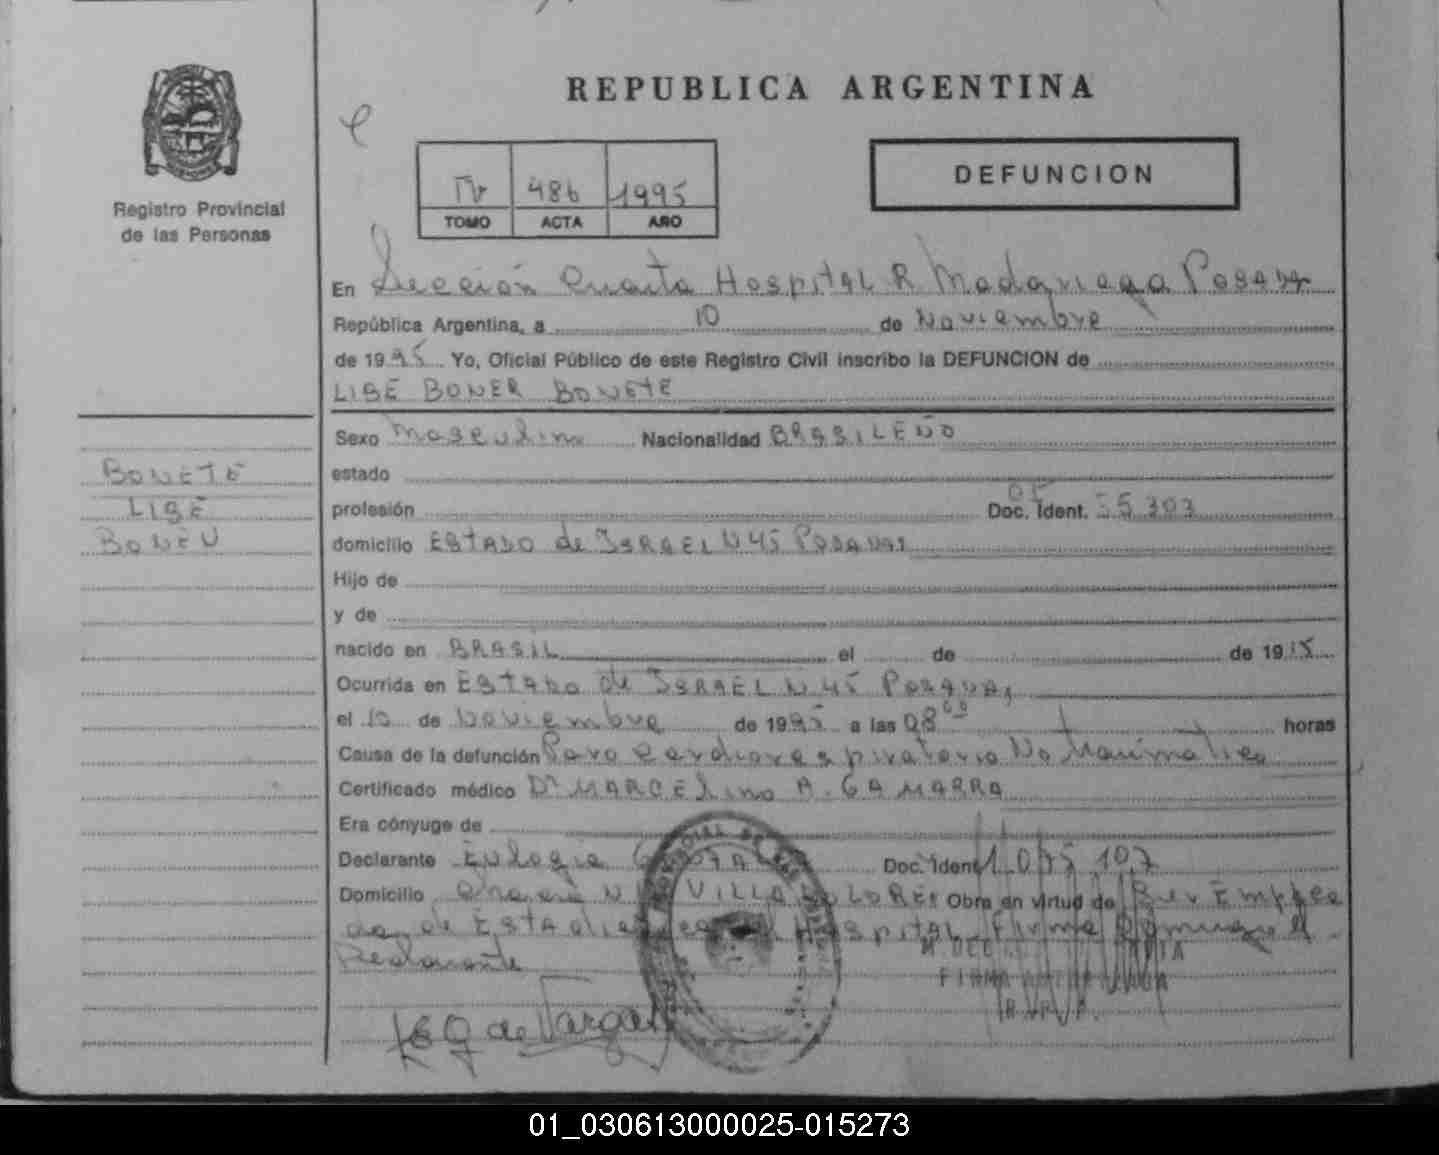 REPUBLICA ARGENTINA
Registro Provincial
de las Personas
IV 486 1995
TOMO ACTA AÑO
DEFUNCION
En Sección Cuarta Hospital R Madariaga Posadas
República Argentina, a 10 de Noviembre
de 1995 Yo, Oficial Público de este Registro Civil inscribo la DEFUNCION de
LIBE BONER BONETE
Sexo Masculino Nacionalidad BRASILEÑO
BONETE
LIBE
estado
profesión Doc. Ident. 55303
domicilio ESTADO de ISRAEL N 45 Posadas
Hijo de
y de
nacido en BRASIL el de de 1915
Ocurrida en ESTADO de ISRAEL N 45 Posadas
el 10 de Noviembre de 1995 a las 08 00 horas
Causa de la defunción Paro Cardiorespiratorio No traumatico
Certificado médico Dr MARCELino A. GAMARRA
Era cónyuge de
Declarante Eulogia Doc. Ident
Domicilio VILLA DOLORES Obra en virtud de Ser Emplea
da de Estadisticas del Hospital Firma
Declarante
de Vargas
01_030613000025-015273